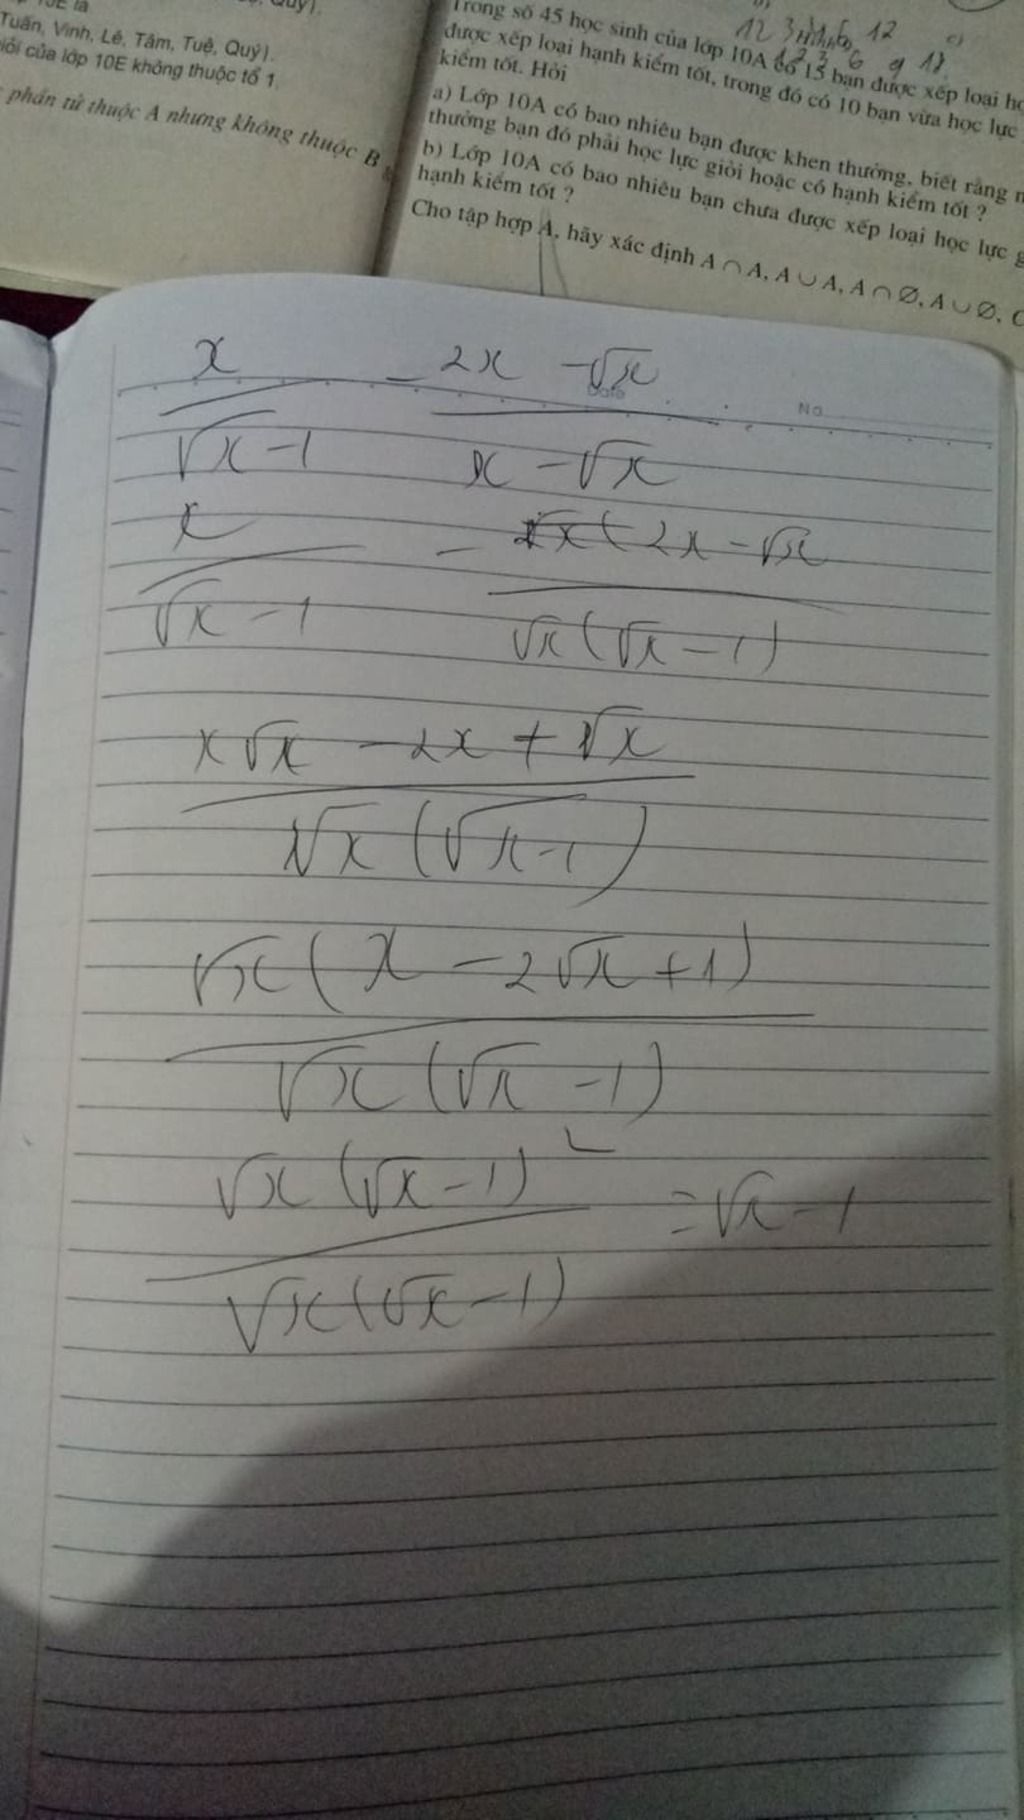 Tuấn, Vinh, Lê, Tâm, Tuệ, Quý}.
của lớp 10E không thuộc tổ 1.
phần tử thuộc A nhưng không thuộc B
Trong số 45 học sinh của lớp 10A có 15 bạn được xếp loại
được xếp loại hạnh kiểm tốt, trong đó có 10 bạn vừa học lực
kiểm tốt. Hỏi
a) Lớp 10A có bao nhiêu bạn được khen thưởng, biết rằng
thưởng bạn đó phải học lực giỏi hoặc có hạnh kiểm tốt ?
b) Lớp 10A có bao nhiêu bạn chưa được xếp loại học lực
hạnh kiểm tốt ?
Cho tập hợp A, hãy xác định A ∩ A, A ∪ A, A ∩ ∅, A ∪ ∅,
Date No
x - 2x - √x
√x - 1 x - √x
x - 2x - √x
√x - 1 √x(√x - 1)
x√x - 2x + √x
√x(√x - 1)
√x(x - 2√x + 1)
√x(√x - 1)
√x(√x - 1)² = √x - 1
√x(√x - 1)